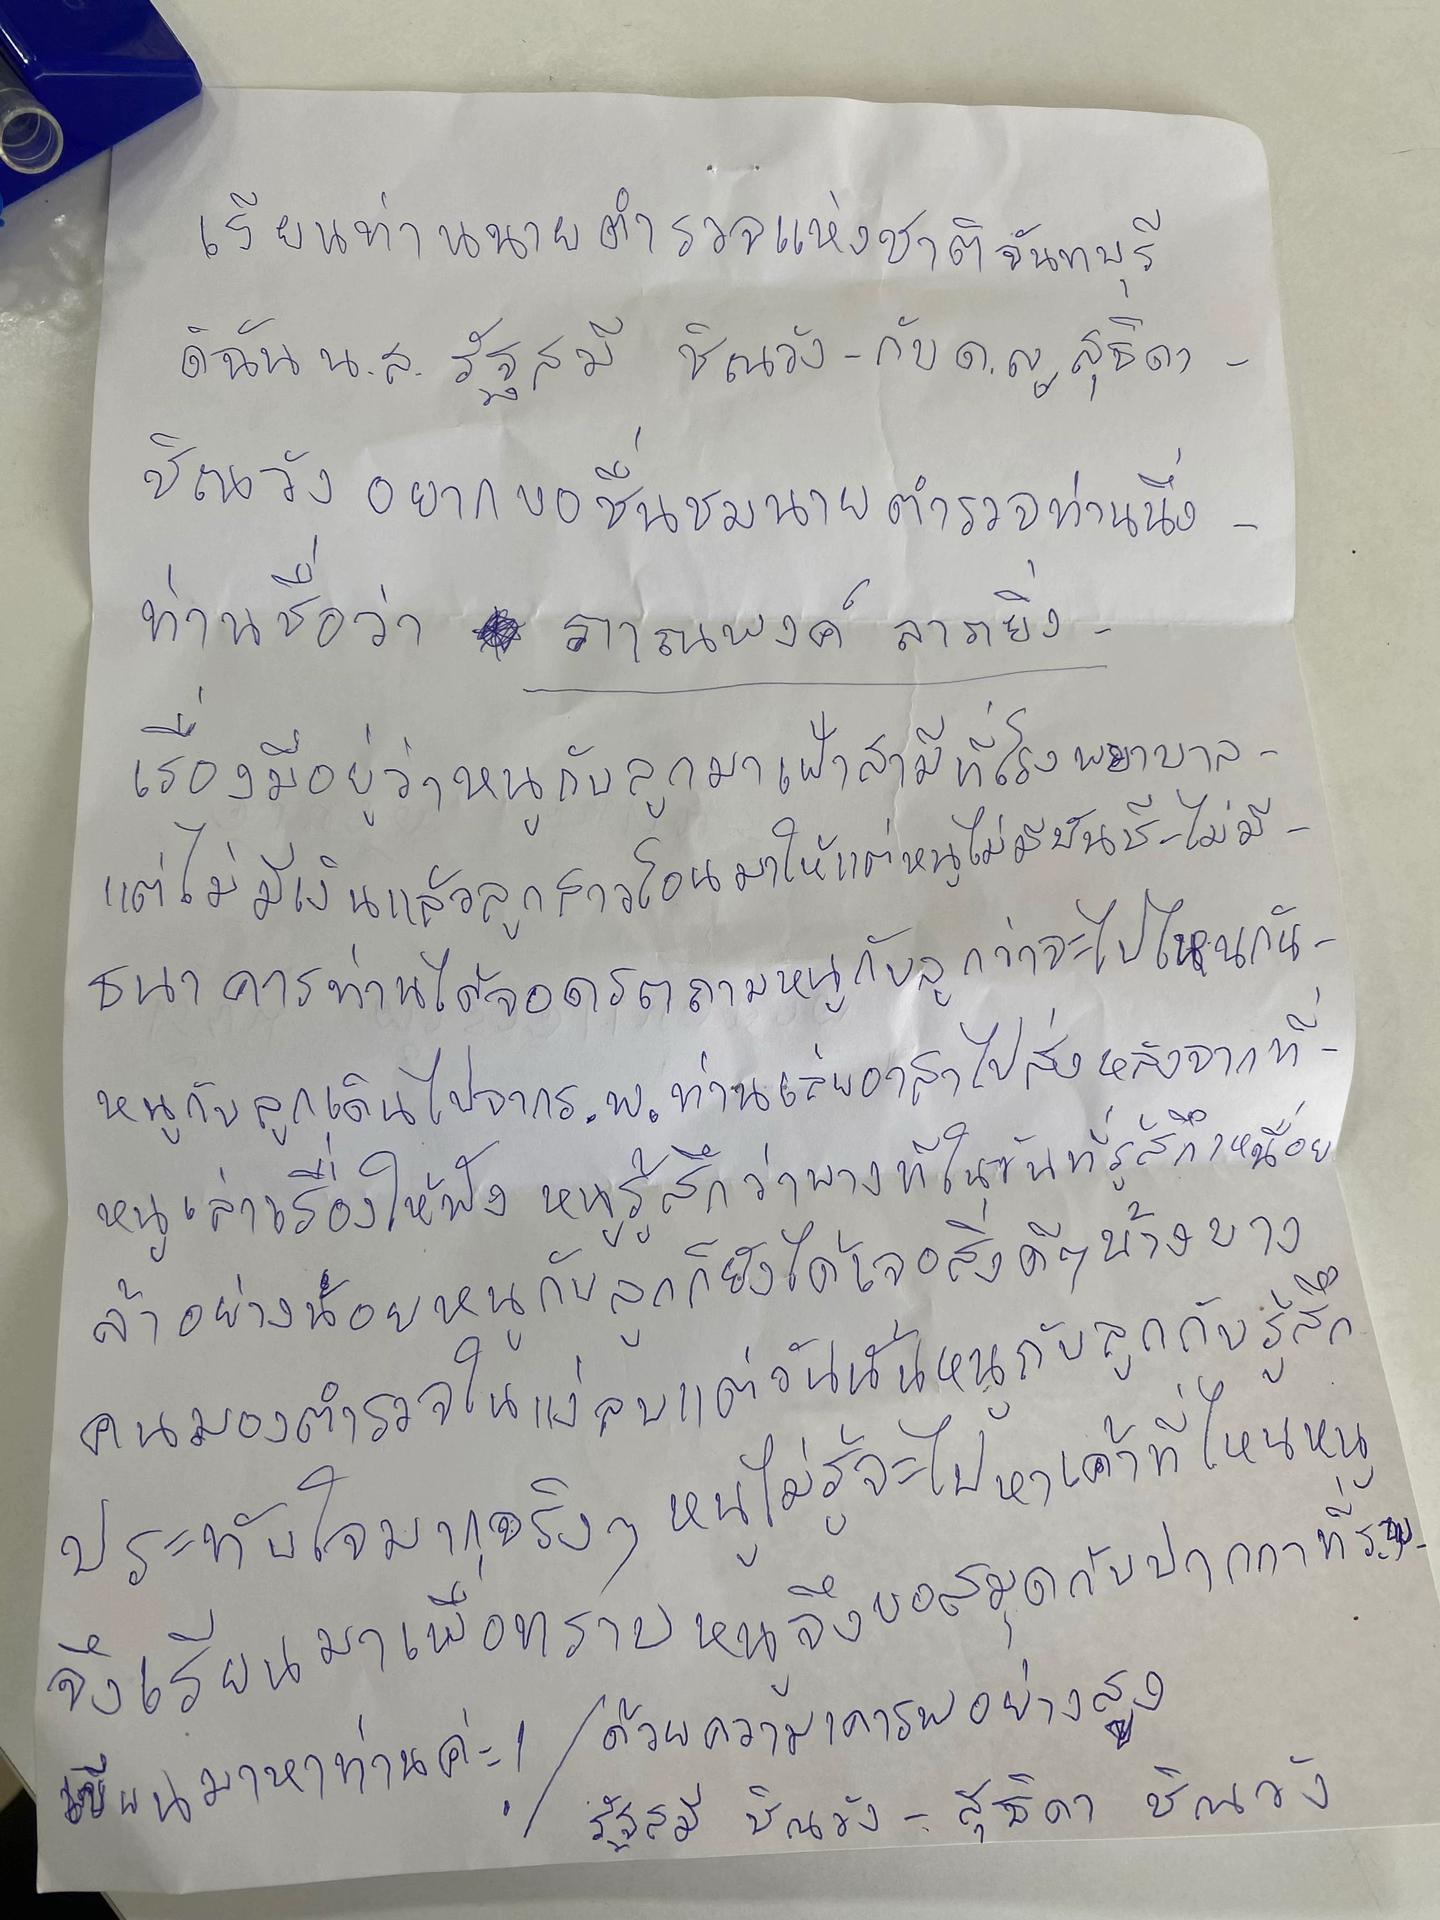 เรียนท่านนายตำรวจแห่งชาติจันทบุรี
ดิฉัน น.ส. รัฐสมี ชิณวัง - กับ ด.ญ สุธิดา -
ชิณวัง อยากขอชื่นชมนายตำรวจท่านนึ่ง -
ท่านชื่อว่า พงค์ ลายิ่ง -
เรื่องมีอยู่ว่าหนูกับลูกมาเฝ้าสามีที่โรงพยาบาล -
แต่ไม่มีเงินแล้วลูกสาวโอนมาให้แต่หนูไม่มีบันชี - ไม่มี -
ธนาคารท่านได้จอดรถถามหนูกับลูกว่าจะไปไหนกัน -
หนูกับลูกเดินไปจาก ร.พ. ท่านเลยอาสาไปส่งหลังจากที่ -
หนูเล่าเรื่องให้ฟัง หนูรู้สึกว่าบางทีในวันที่รู้สึกเหนื่อย
ล้าอย่างน้อยหนูกับลูกก็ยังได้เจอสิ่งดีๆบ้างบาง
คนมองตำรวจในแง่ลบแต่วันนั้นหนูกับลูกกับรู้สึก
ประทับใจมากจริงๆ หนูไม่รู้จะไปหาเค้าที่ไหนหนู
จึงเรียนมาเพื่อทราบหนูจึงขอสมุดกับปากกาที่ร.พ -
เขียนมาหาท่านค่ะ! / ด้วยความเคารพอย่างสูง
รัฐสมี ชิณวัง - สุธิดา ชิณวัง